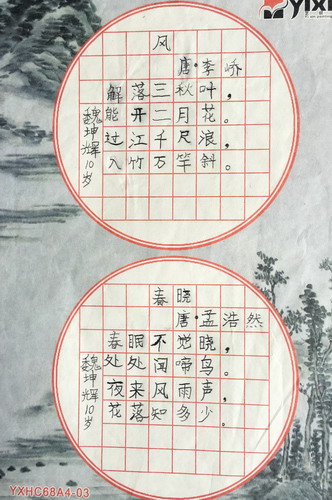 YIXI
风
唐·李峤
解落三秋叶，
能开二月花。
过江千尺浪，
入竹万竿斜。
魏坤辉10岁
春晓
唐·孟浩然
春眠不觉晓，
处处闻啼鸟。
夜来风雨声，
花落知多少。
魏坤辉10岁
YXHC68A4-03